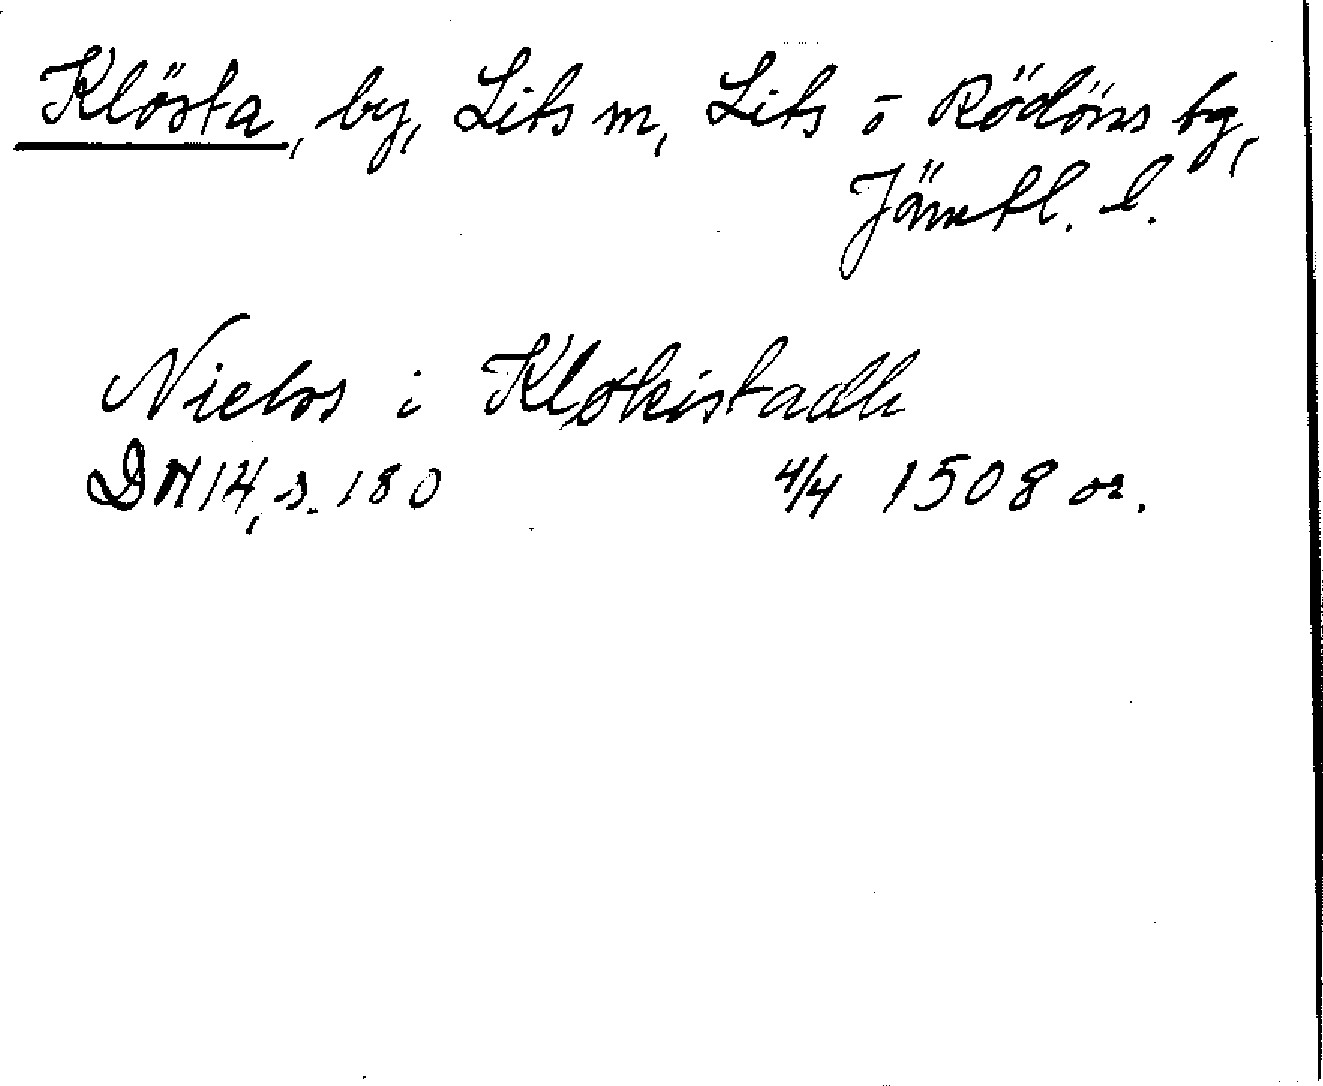 Klösta, by, Lits sn, Lits o Rödöns tg,
Jämtl. l.
Nielss i Kløkistadh
DN 14, s. 180 4/4 1508 or.